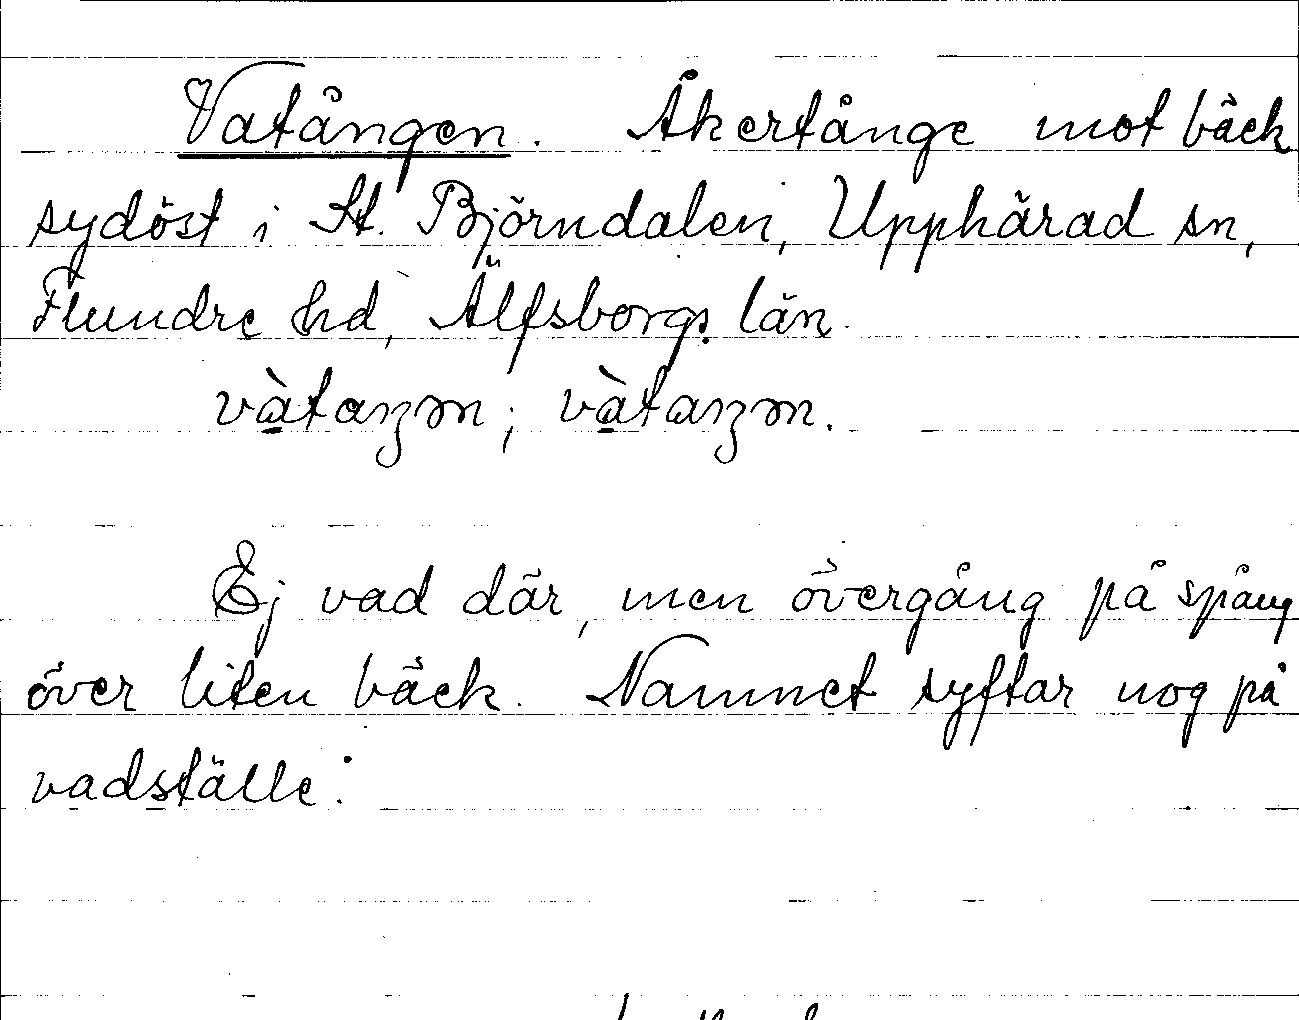 Vatången. Åkertånge mot bäck
sydöst i St. Björndalen, Upphärad sn,
Flundre hd, Älfsborgs län.
vàtaŋən; vàtaŋən.
Ej vad där, men övergång på spång
över liten bäck. Namnet syftar nog på
vadställe.